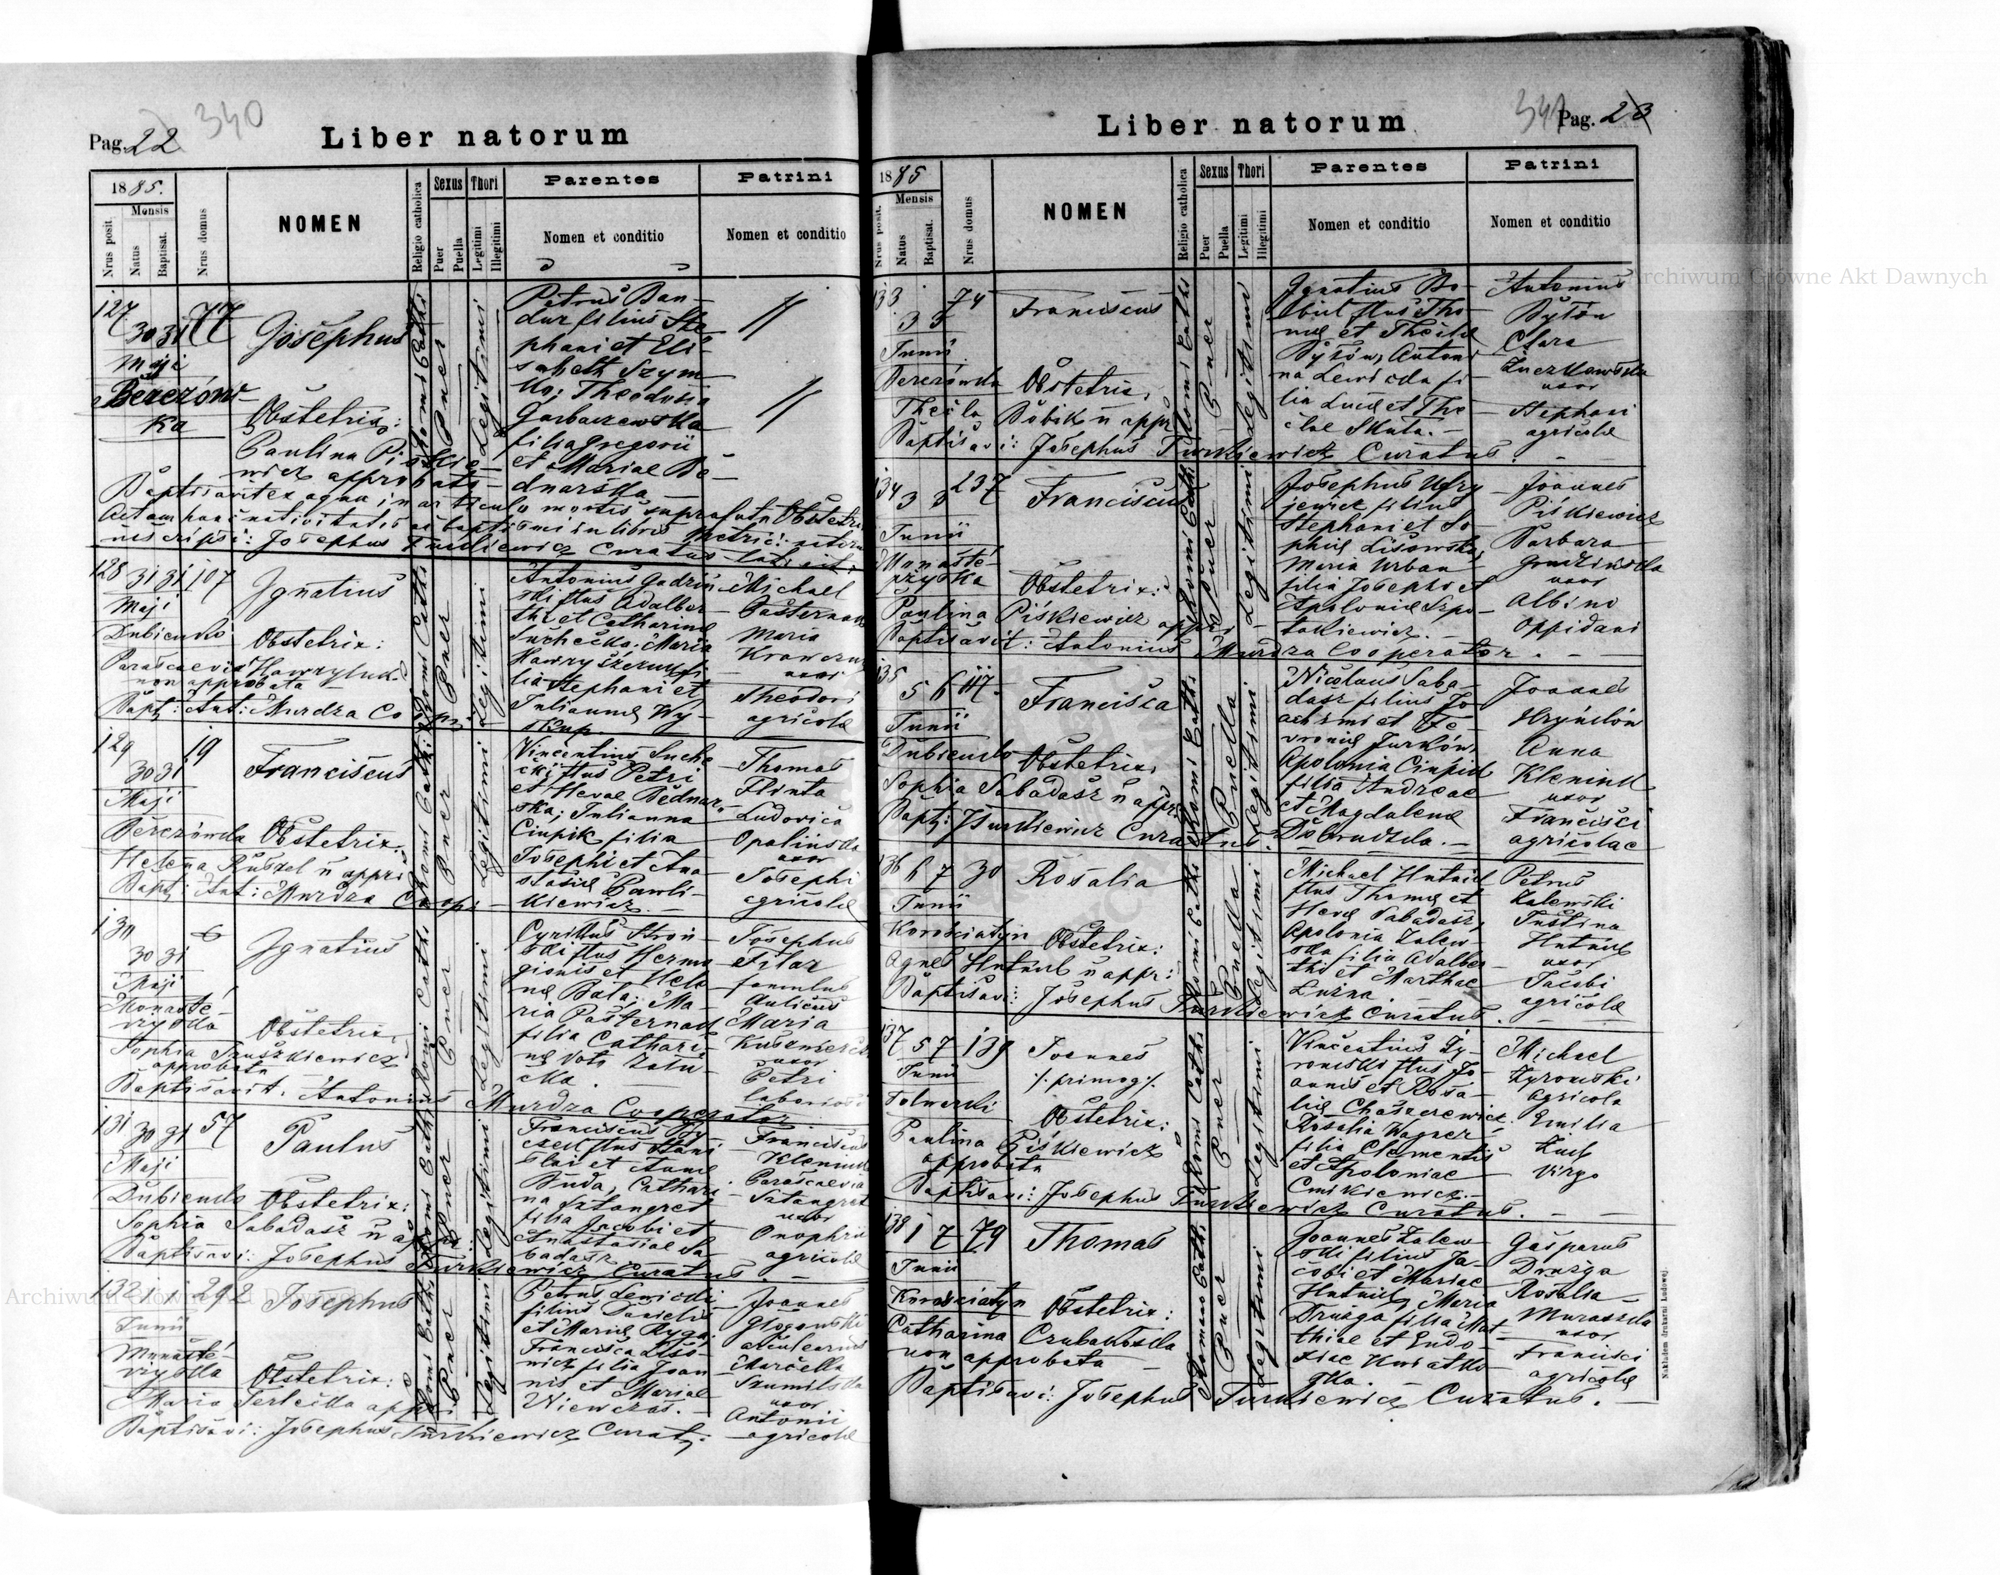 Pag. 22 340
Liber natorum
1885.
Nrus posit.
Mensis
Natus
Baptisat.
Nrus domus
NOMEN
Religio catholica
Sexus
Puer
Puella
Thori
Legitimi
Illegitimi
Parentes
Nomen et conditio
Patrini
Nomen et conditio
127 30 31 77 Josephus
Maji
Berezów
ka
Obstetrix:
Paulina Piskie
wicz approbata
Romi Cath
Puer
Legitimi
Petrus Ban-
dur filius Ste
phani et Eli-
sabeth Szym
ko, Theodosia
Garbaczewska
filia Gregorii
et Mariae Be-
dnarska
Baptisavit ex aqua in articulo mortis suprafata Obstetrix
Actam hanc nativitatis ac baptismi in libris
Josephus Turkiewicz Curatus
128 31 31 107 Ignatius
Maji
Dubienko Obstetrix:
Parascaevia Hawryluk
non approbata
Bapt: Ant: Murdza Coopr
Romi Cath
Puer
Legitimi
Antonius
ski flius Adalber-
thi et Catharinae
Suchecka, Maria
filia Stephani et
Julianna Wy-
Michael
Pasternak
Maria
Krawczuk
uxor
Theodori
agricolae
129 30 31 19 Franciscus
Maji
Berezówka Obstetrix:
Helena Ruszel n appr
Bapt: Ant: Murdza Coopr
Romi Cath
Puer
Legitimi
Vincentius Suche
cki flius Petri
et Evae Bednar-
ska, Julianna
Ciupik filia
Josephi et Ana
stasiae Pawli-
kiewicz.
Thomas
Flinta
Ludovica
Opalinska
uxor
Josephi
agricolae
130 30 31 6 Ignatius
Maji
Monaste-
rzyska Obstetrix,
Sophia Truszkiewicz
approbata
Baptisavit. Antonius Murdza Cooperator
Romi Cath
Puer
Legitimi
Cyrillus Stron-
ski flius Hermo
gionis et Hele
nae Bala, Ma
ria Pasternak
filia Cathari-
nae
Josephus
Filar
famulus
Aulicus
Maria
uxor
Petri
laboriosi
131 30 31 57 Paulus
Maji
Dubienko Obstetrix:
Sophia Sabadasz n appr:
Baptisavi: Josephus Turkiewicz Curatus.
Romi Cath
Puer
Legitimi
Franciscus
flius Stani
slai et Annae
Buda, Cathari-
na Satangret
filia Jacobi et
Anastasiae Sa-
badasz
Franciscus
Klemink
Parascaevia
Satangret
uxor
Onophrii
agricolae
132 1 1 292 Josephus
Junii
Monaste-
rzyska Obstetrix:
Maria Terlecka appr
Baptisavi: Josephus Turkiewicz Curat.
Romi Cath
Puer
Legitimi
Petrus Lewicki
filius Danielis
et Mariae Ryga,
Francisca
filia Joan
nis et Mariae
Niewczas.
Joannes
Glogowski
Marcella
Szumilska
uxor
Antonii
agricolae
341 Pag. 23
Liber natorum
1885
Nrus posit.
Mensis
Natus
Baptisat.
Nrus domus
NOMEN
Religio catholica
Sexus
Puer
Puella
Thori
Legitimi
Illegitimi
Parentes
Nomen et conditio
Patrini
Nomen et conditio
133 3 3 74 Franciscus
Junii
Berezówka Obstetrix,
Thecla Bobik n appr
Baptisavi: Josephus Turkiewicz Curatus.
Romi Cath
Puer
Legitimi
Ignatius Bo-
bik flius Tho-
mae et Theclae
Bytów, Antoni
na Lewicka fi-
lia Lucae et The
clae Skuta.
Antonius
Bytón
Clara
uxor
Stephani
agricolae
134 3 3 237 Franciscus
Junii
Monaste-
rzyska Obstetrix:
Paulina Piśkiewicz appr
Baptisavit: Antonius Murdza Cooperator.
Romi Cath
Puer
Legitimi
Josephus Ugry
jewicz filius
Stephani et So
phiae Lisowska,
Maria Urban
filia Josephi et
Apoloniae Szpo-
takiewicz.
Joannes
Piśkiewicz
Barbara
Grudzińska
uxor
Albino
Oppidani
135 5 6 117. Francisca
Junii
Dubienko Obstetrix,
Sophia Sabadasz n appr,
Bapt: J Turkiewicz Curatus.
Romi Cath
Puella
Legitimi
Nicolaus Saba-
dasz filius Jo
achimi et Fe-
vroniae Jurków,
Apolonia Ciupik
filia Andreae
et Magdalenae
Dobrudzka.
Joannes
Hryńków
Anna
Klemink
uxor
Francisci
agricolae
136 6 7 30 Rosalia
Junii
Korosciatyn Obstetrix:
Agnes Hutnik n appr:
Baptisavi: Josephus Turkiewicz Curatus.
Romi Cath
Puella
Legitimi
Michael Hutnik
flius Thomae et
Evae Sabadasz,
Apolonia Zalew-
ska filia Adalber-
thi et Marthae
Luzna.
Petrus
Zalewski
Justina
Hutnik
uxor
Jacobi
agricolae
137 5 7 139 Joannes
Junii /. primog /.
Folwarki Obstetrix:
Paulina Piśkiewicz
approbata
Baptisavi: Josephus Turkiewicz Curatus.
Romi Cath
Puer
Legitimi
Vincentius Ży-
romski flius Jo-
annis et Rosa-
liae Chaszczewicz
Rosalia Wagner
filia Clementis
et Apoloniae
Cmikiewicz.
Michael
Żyromski
Agricola
Emilia
Virgo
138 1 7 79 Thomas
Junii
Korosciatyn Obstetrix:
Catharina Czubakowska
non approbata
Baptisavi: Josephus Turkiewicz Curatus.
Romano Cath
Puer
Legitimi
Joannes Zalew-
ski filius Ja-
cobi et Mariae
Hutnik, Maria
Drużga filia Mat-
thiae et Eudo-
xiae Kwiatko
ska.
Gasparus
Drużga
Rosalia
Muraszka
uxor
Francisci
agricolae
Nakładem drukarni Ludowej.
Archiwum Główne Akt Dawnych
Archiwum Główne Akt Dawnych